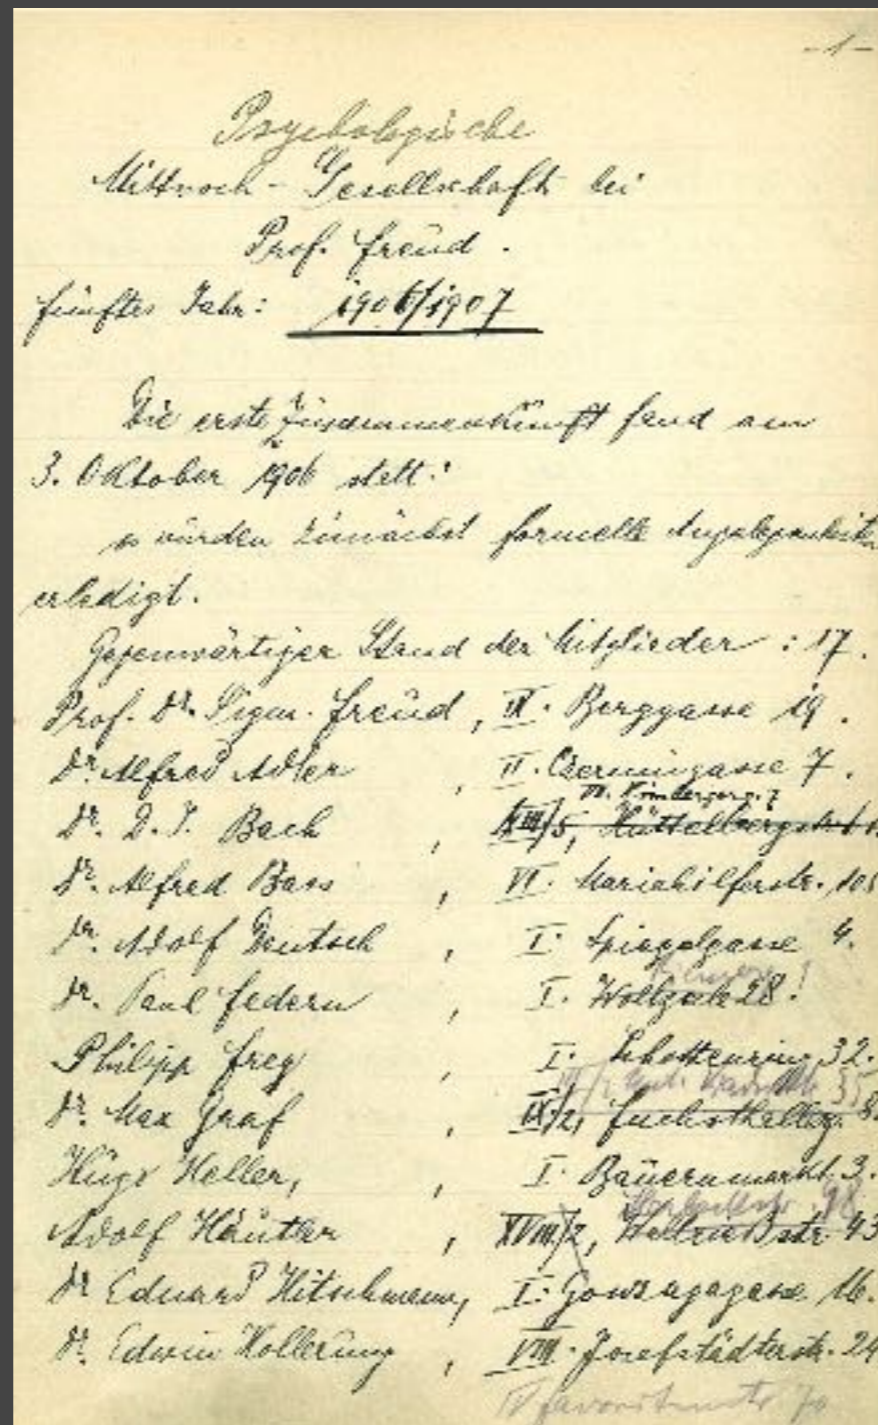 -1-
Psychologische
Mittwoch-Gesellschaft bei
Prof. Freud.
fünftes Jahr: 1906/1907
Die erste Zusammenkunft fand am
3. Oktober 1906 statt:
es wurden zunächst formelle Angelegenheiten
erledigt.
Gegenwärtiger Stand der Mitglieder: 17.
Prof. Dr. Sigm. Freud, IX. Berggasse 19.
Dr. Alfred Adler, II. Czerningasse 7.
Dr. D. J. Bach, XIII/5, Hüttelbergstr.
Dr. Alfred Bass, VI. Mariahilferstr. 105
Dr. Adolf Deutsch, I. Spiegelgasse 4.
Dr. Paul Federn, I. Wollzeile 28.
Philipp Frey, I. Schottenring 32.
Dr. Max Graf, IX/2, Fuchsthallerg. 8.
Hugo Heller, I. Bauernmarkt 3.
Adolf Häutler, XVIII/2, 43
Dr. Eduard Hitschmann, I. Gonzagagasse 16.
Dr. Edwin Hollerung, VIII. Josefstädterstr. 24